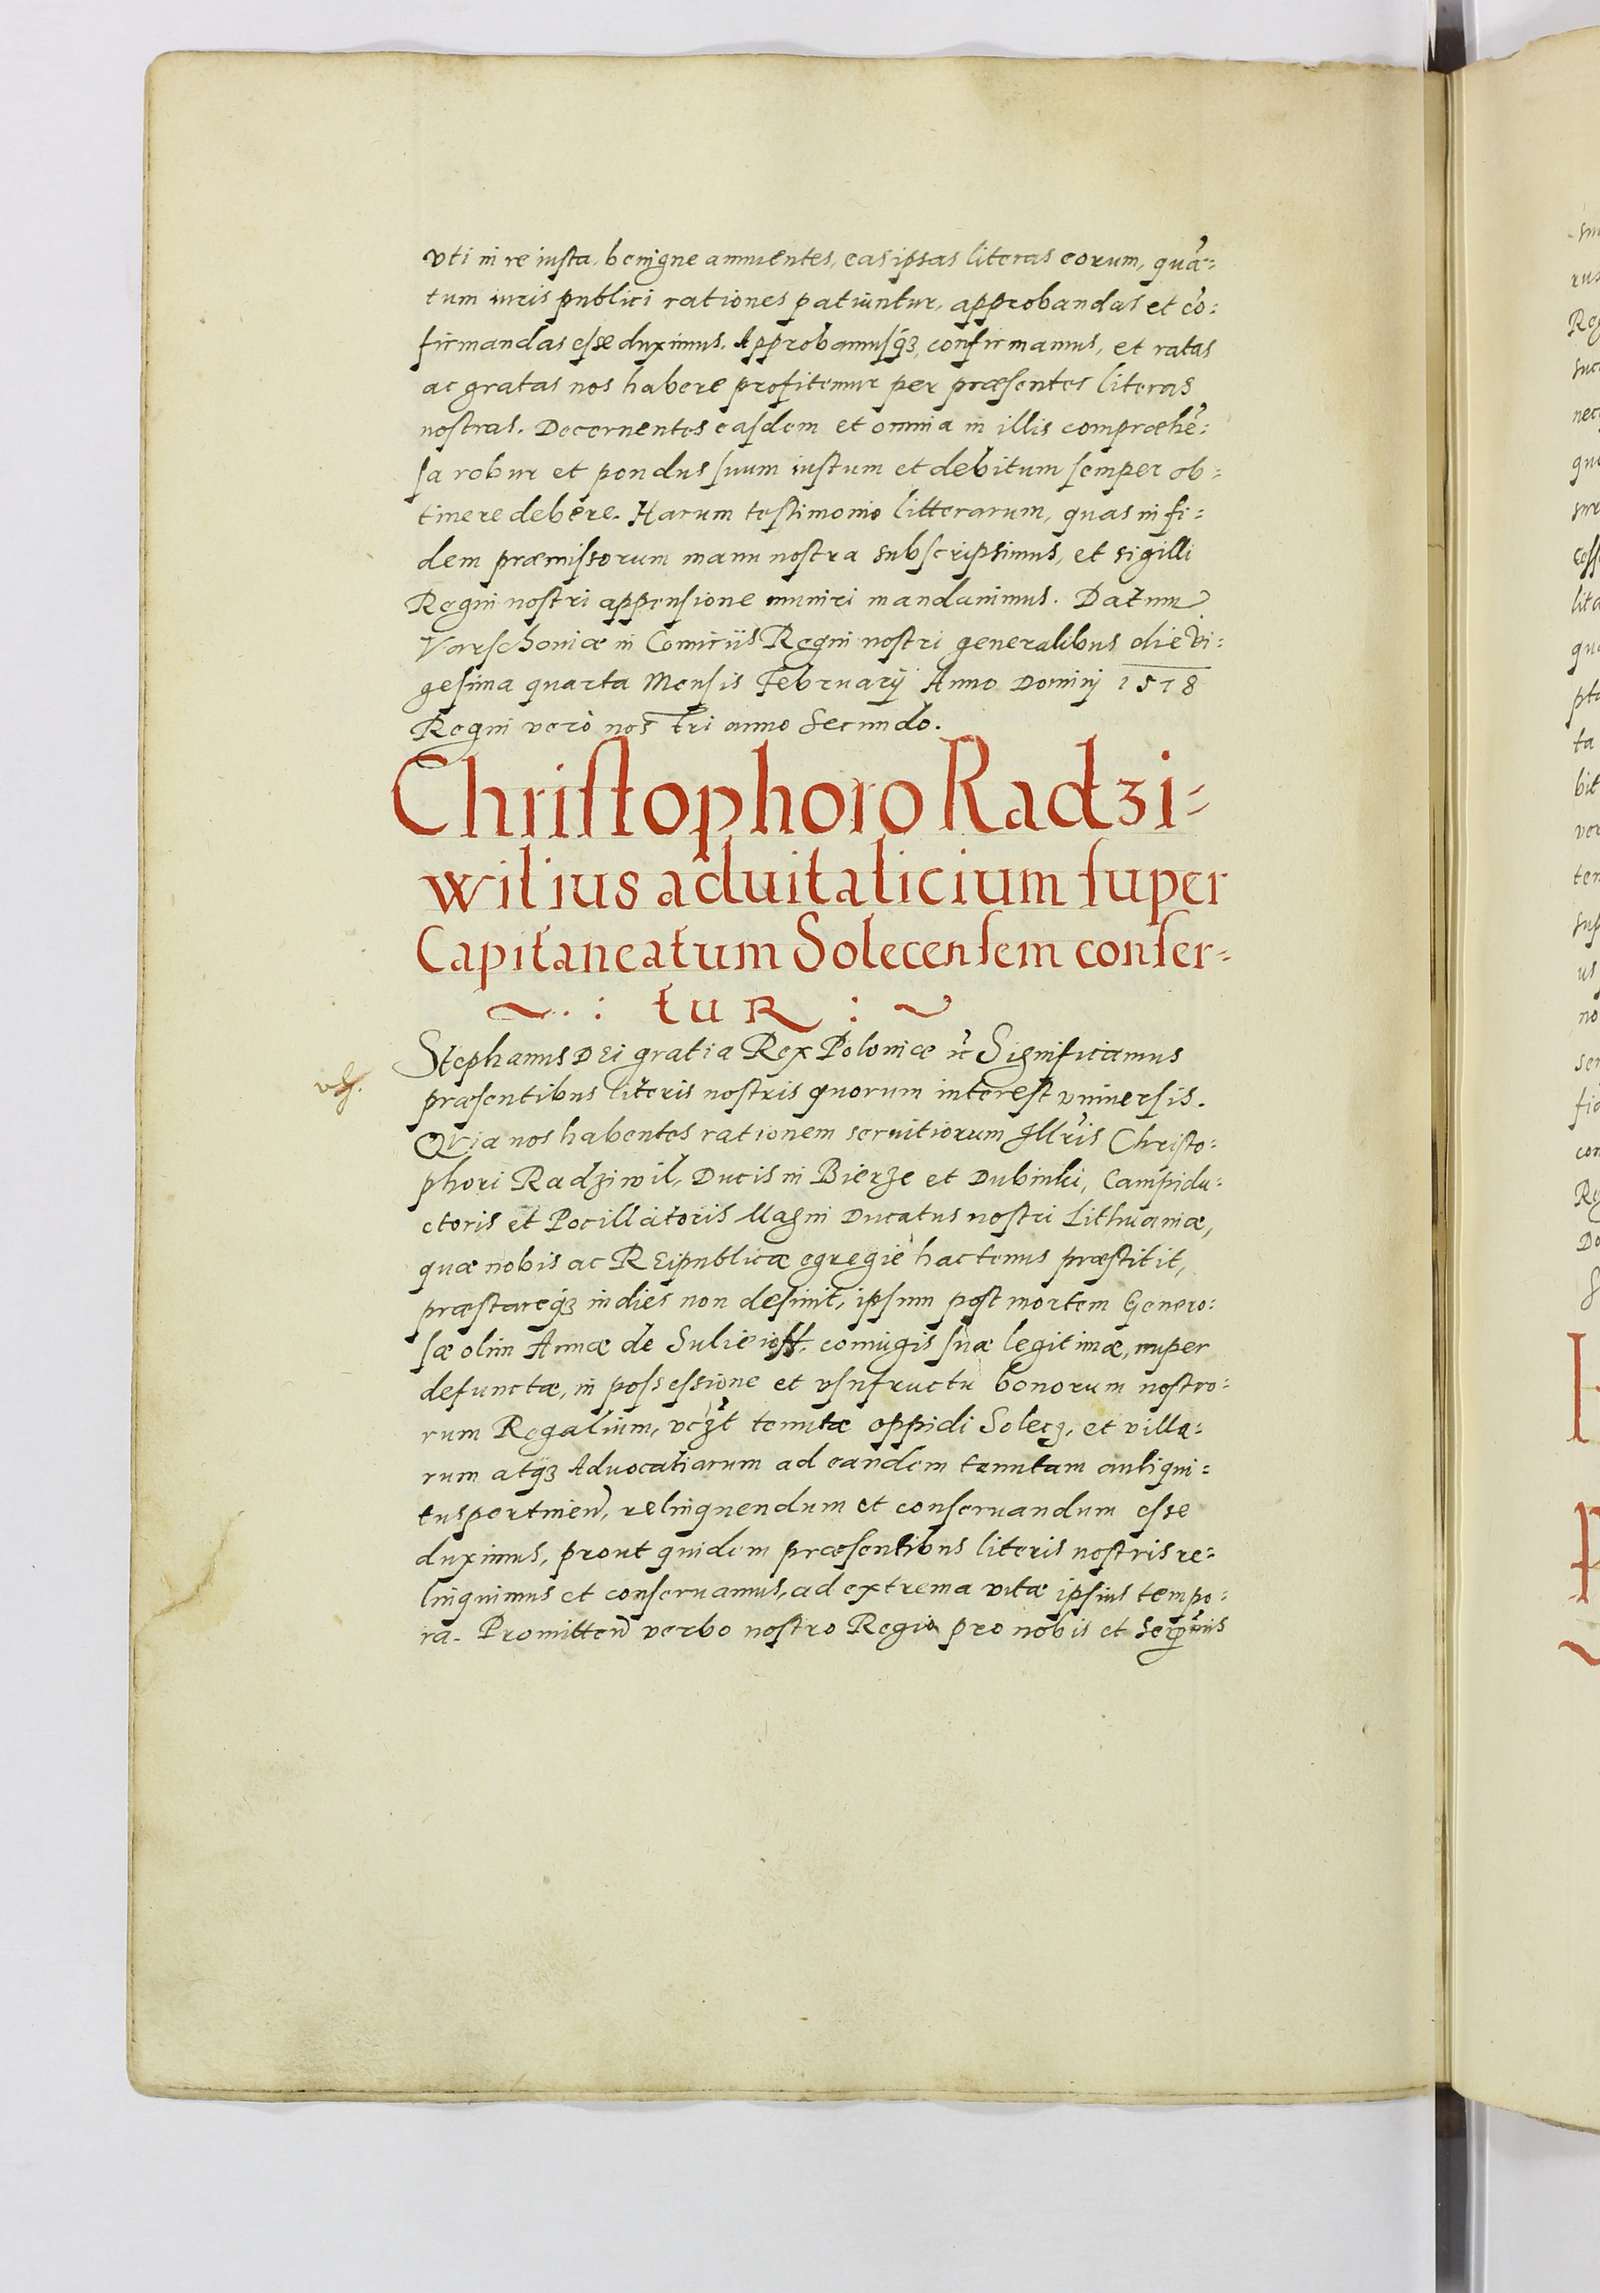 vti in re iusta, benigne annuentes, eas ipsas literas eorum, quā-
tum iuris publici rationes patiuntur, approbandas et cō-
firmandas esse duximus. Approbamusq₃ confirmamus, et ratas
ac gratas nos habere profitemur per præsentes literas
nostras. Decernentes easdem et omnia in illis compræhē-
sa robur et pondus suum iustum et debitum semper ob-
tinere debere. Harum testimonio litterarum, quas in fi-
dem præmissorum manu nostra subscripsimus, et sigilli
Regni nostri appensione muniri mandauimus. Datum
Varschouiæ in Comitiis Regni nostri generalibus die vi-
gesima quarta Mensis Februarij Anno Dominj 1578
Regni verò nostri anno Secundo.
Christophoro Radzi-
wilius aduitalicium super
Capitaneatum Solecensem confer-
tur
Stephanus DEi gratia Rex Poloniæ ꝛc Significamus
præsentibus literis nostris quorum interest vniuersis.
QVia nos habentes rationem seruitiorum Illris Christo-
phori Radziwil, Ducis in Bierze et Dubinki, Campidu-
ctoris et Pocillatoris Magni Ducatus nostri Lithuaniæ,
quæ nobis ac REipublicæ egregiè hactenus præstitit,
præstareq₃ indies non desinit, ipsum post mortem Genero-
sæ olim Annæ de Sulieioff. coniugis suæ legitimæ, nuper
defunctæ, in possessione et vsufructu bonorum nostro-
rum Regalium, vczt tenutæ oppidi Solecz, et villa-
rum atq₃ Aduocatiarum ad eandem tenutam antiqui-
tus pertinen, relinquendum et conseruandum esse
duximus, prout quidem præsentibus literis nostris re-
linquimus et conseruamus, ad extrema vitæ ipsius tempo-
ra. Promitten verbo nostro Regio pro nobis et Serenis